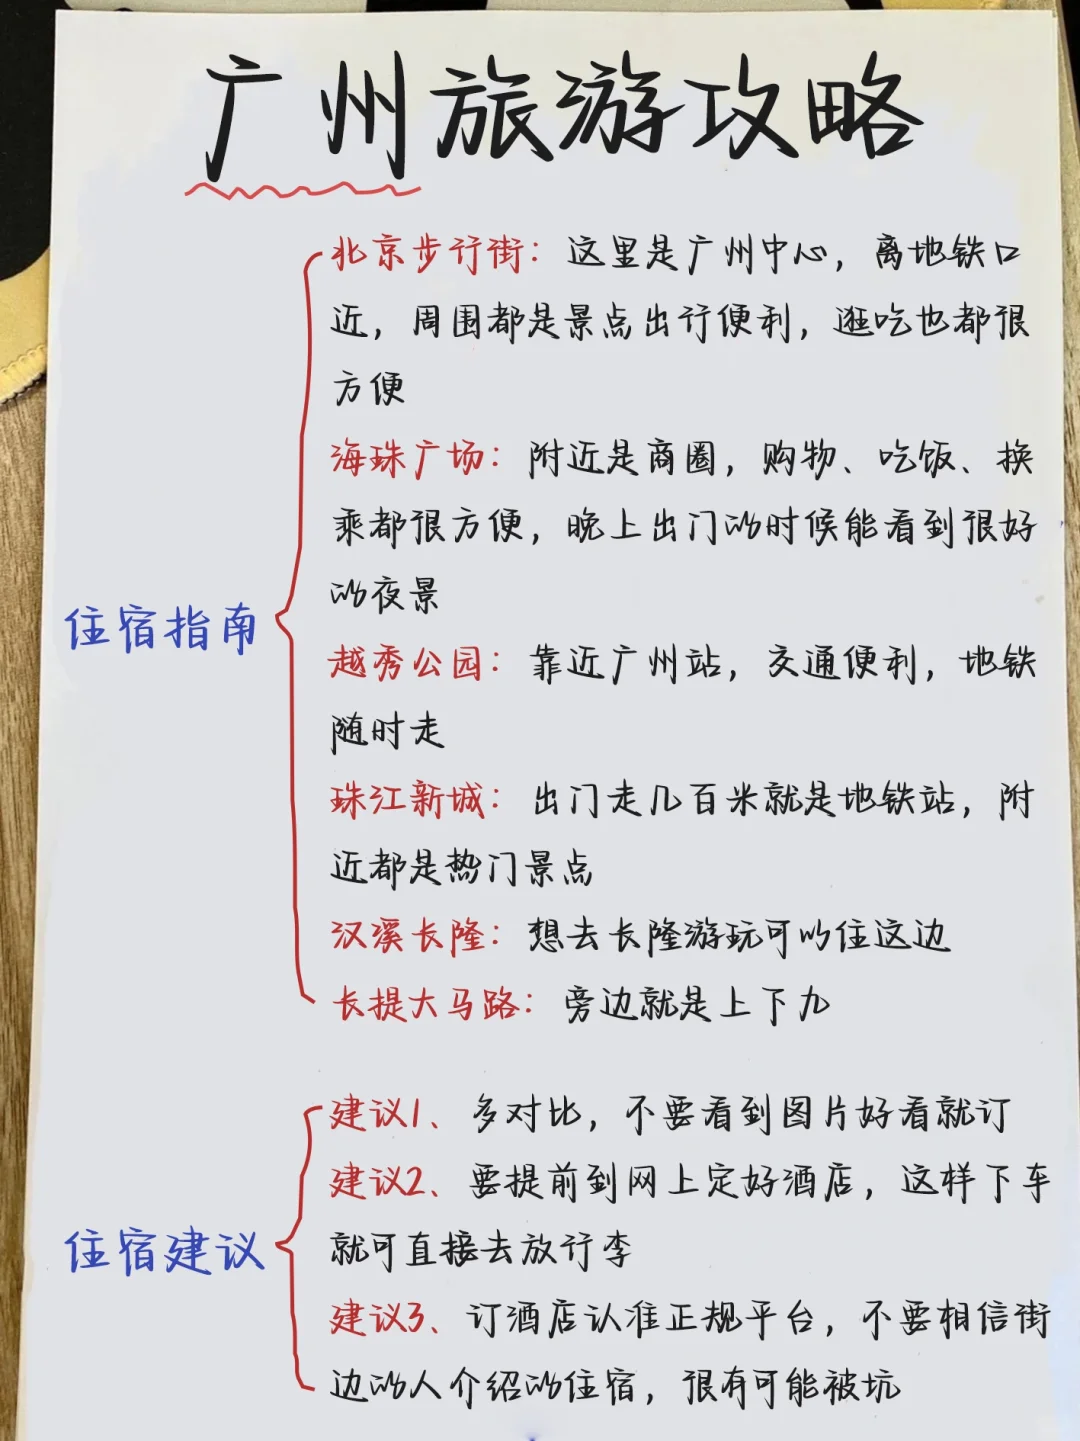 广州旅游攻略
住宿指南
北京步行街：这里是广州中心，离地铁口
近，周围都是景点出行便利，逛吃也都很
方便
海珠广场：附近是商圈，购物、吃饭、换
乘都很方便，晚上出门的时候能看到很好
的夜景
越秀公园：靠近广州站，交通便利，地铁
随时走
珠江新城：出门走几百米就是地铁站，附
近都是热门景点
汉溪长隆：想去长隆游玩可以住这边
长提大马路：旁边就是上下九
住宿建议
建议1、多对比，不要看到图片好看就订
建议2、要提前到网上定好酒店，这样下车
就可直接去放行李
建议3、订酒店认准正规平台，不要相信街
边的人介绍的住宿，很有可能被坑